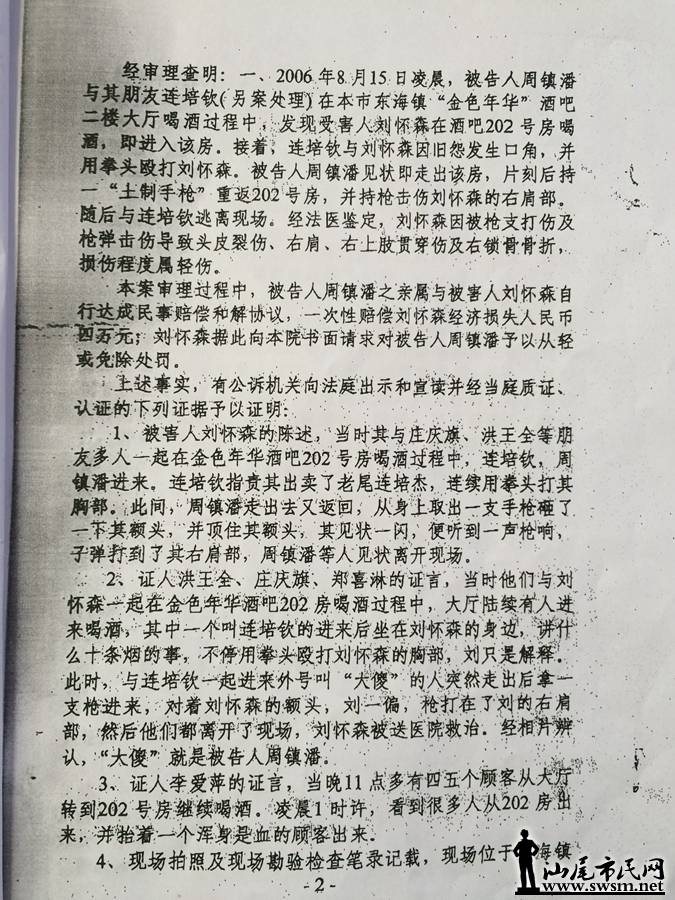 经审理查明：一、2006年8月15日凌晨，被告人周镇潘
与其朋友连培钦(另案处理)在本市东海镇“金色年华”酒吧
二楼大厅喝酒过程中，发现受害人刘怀森在酒吧202号房喝
酒，即进入该房。接着，连培钦与刘怀森因旧怨发生口角，并
用拳头殴打刘怀森。被告人周镇潘见状即走出该房，片刻后持
一“土制手枪”重返202号房，并持枪击伤刘怀森的右肩部。
随后与连培钦逃离现场。经法医鉴定，刘怀森因被枪支打伤及
枪弹击伤导致头皮裂伤、右肩、右上肢贯穿伤及右锁骨骨折，
损伤程度属轻伤。
本案审理过程中，被告人周镇潘之亲属与被害人刘怀森自
行达成民事赔偿和解协议，一次性赔偿刘怀森经济损失人民币
四万元；刘怀森据此向本院书面请求对被告人周镇潘予以从轻
或免除处罚。
上述事实，有公诉机关向法庭出示和宣读并经当庭质证、
认证的下列证据予以证明：
1、被害人刘怀森的陈述，当时其与庄庆旗、洪王全等朋
友多人一起在金色年华酒吧202号房喝酒过程中，连培钦，周
镇潘进来。连培钦指责其出卖了老尾连培杰，连续用拳头打其
胸部。此间，周镇潘走出去又返回，从身上取出一支手枪砸了
一下其额头，并顶住其额头，其见状一闪，便听到一声枪响，
子弹打到了其右肩部，周镇潘等人见状离开现场。
2、证人洪王全、庄庆旗、郑喜淋的证言，当时他们与刘
怀森一起在金色年华酒吧202房喝酒过程中，大厅陆续有人进
来喝酒，其中一个叫连培钦的进来后坐在刘怀森的身边，讲什
么十条烟的事，不停用拳头殴打刘怀森的胸部，刘只是解释。
此时，与连培钦一起进来外号叫“大傻”的人突然走出后拿一
支枪进来，对着刘怀森的额头，刘一偏，枪打在了刘的右肩
部，然后他们都离开了现场，刘怀森被送医院救治。经相片辨
认，“大傻”就是被告人周镇潘。
3、证人李爱萍的证言，当晚11点多有四五个顾客从大厅
转到202号房继续喝酒。凌晨1时许，看到很多人从202房出
来，并抬着一个浑身是血的顾客出来。
4、现场拍照及现场勘验检查笔录记载，现场位于海镇
-2-
汕尾市民网
www.swsm.net